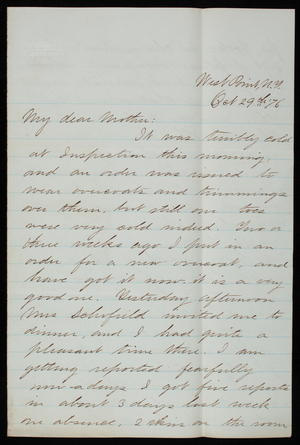 West Point, N.Y.
Oct 29th 76
My dear Mother:
It was terribly cold
at Inspection this morning,
and an order was issued to
wear overcoats and trimmings
over them, but still our toes
were very cold indeed. Two or
three weeks ago I put in an
order for a new overcoat, and
have got it now. it is a very
good one. Yesterday afternoon
Mrs Schofield invited me to
dinner, and I had quite a
pleasant time there. I am
getting reported fearfully
now-a-days. I got five reports
in about 3 days last week
one absence, 2 on the room